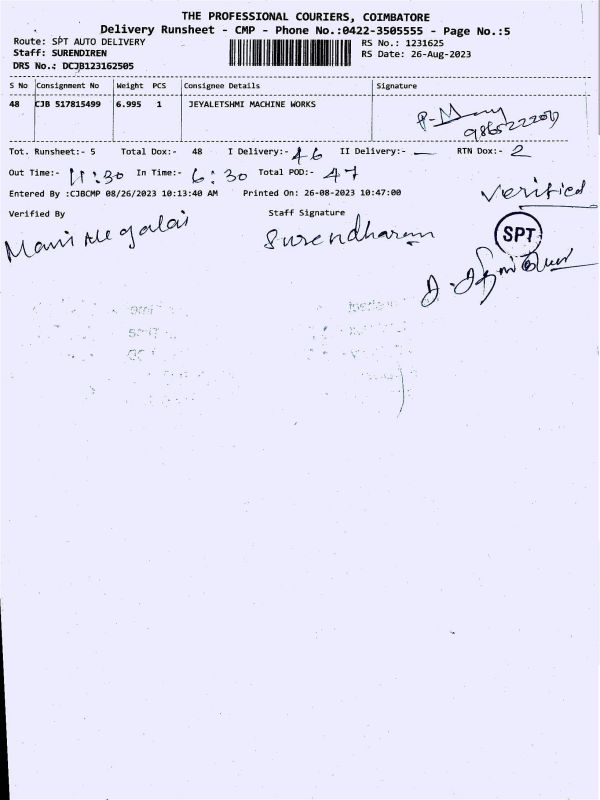 THE PROFESSIONAL COURIERS, COIMBATORE
Delivery Runsheet - CMP - Phone No.:0422-3505555 - Page No.:5
Route: SPT AUTO DELIVERY RS No.: 1231625
Staff: SURENDIREN RS Date: 26-Aug-2023
DRS No.: DCJB123162505
S No Consignment No Weight PCS Consignee Details Signature
48 CJB 517815499 6.995 1 JEYALETSHMI MACHINE WORKS
Tot. Runsheet:- 5 Total Dox:- 48 I Delivery:- 46 II Delivery:- — RTN Dox:- 2
Out Time:- 11:30 In Time:- 6:30 Total POD:- 47
Entered By :CJBCMP 08/26/2023 10:13:40 AM Printed On: 26-08-2023 10:47:00 Verified
Verified By Staff Signature
Surendharan
SPT